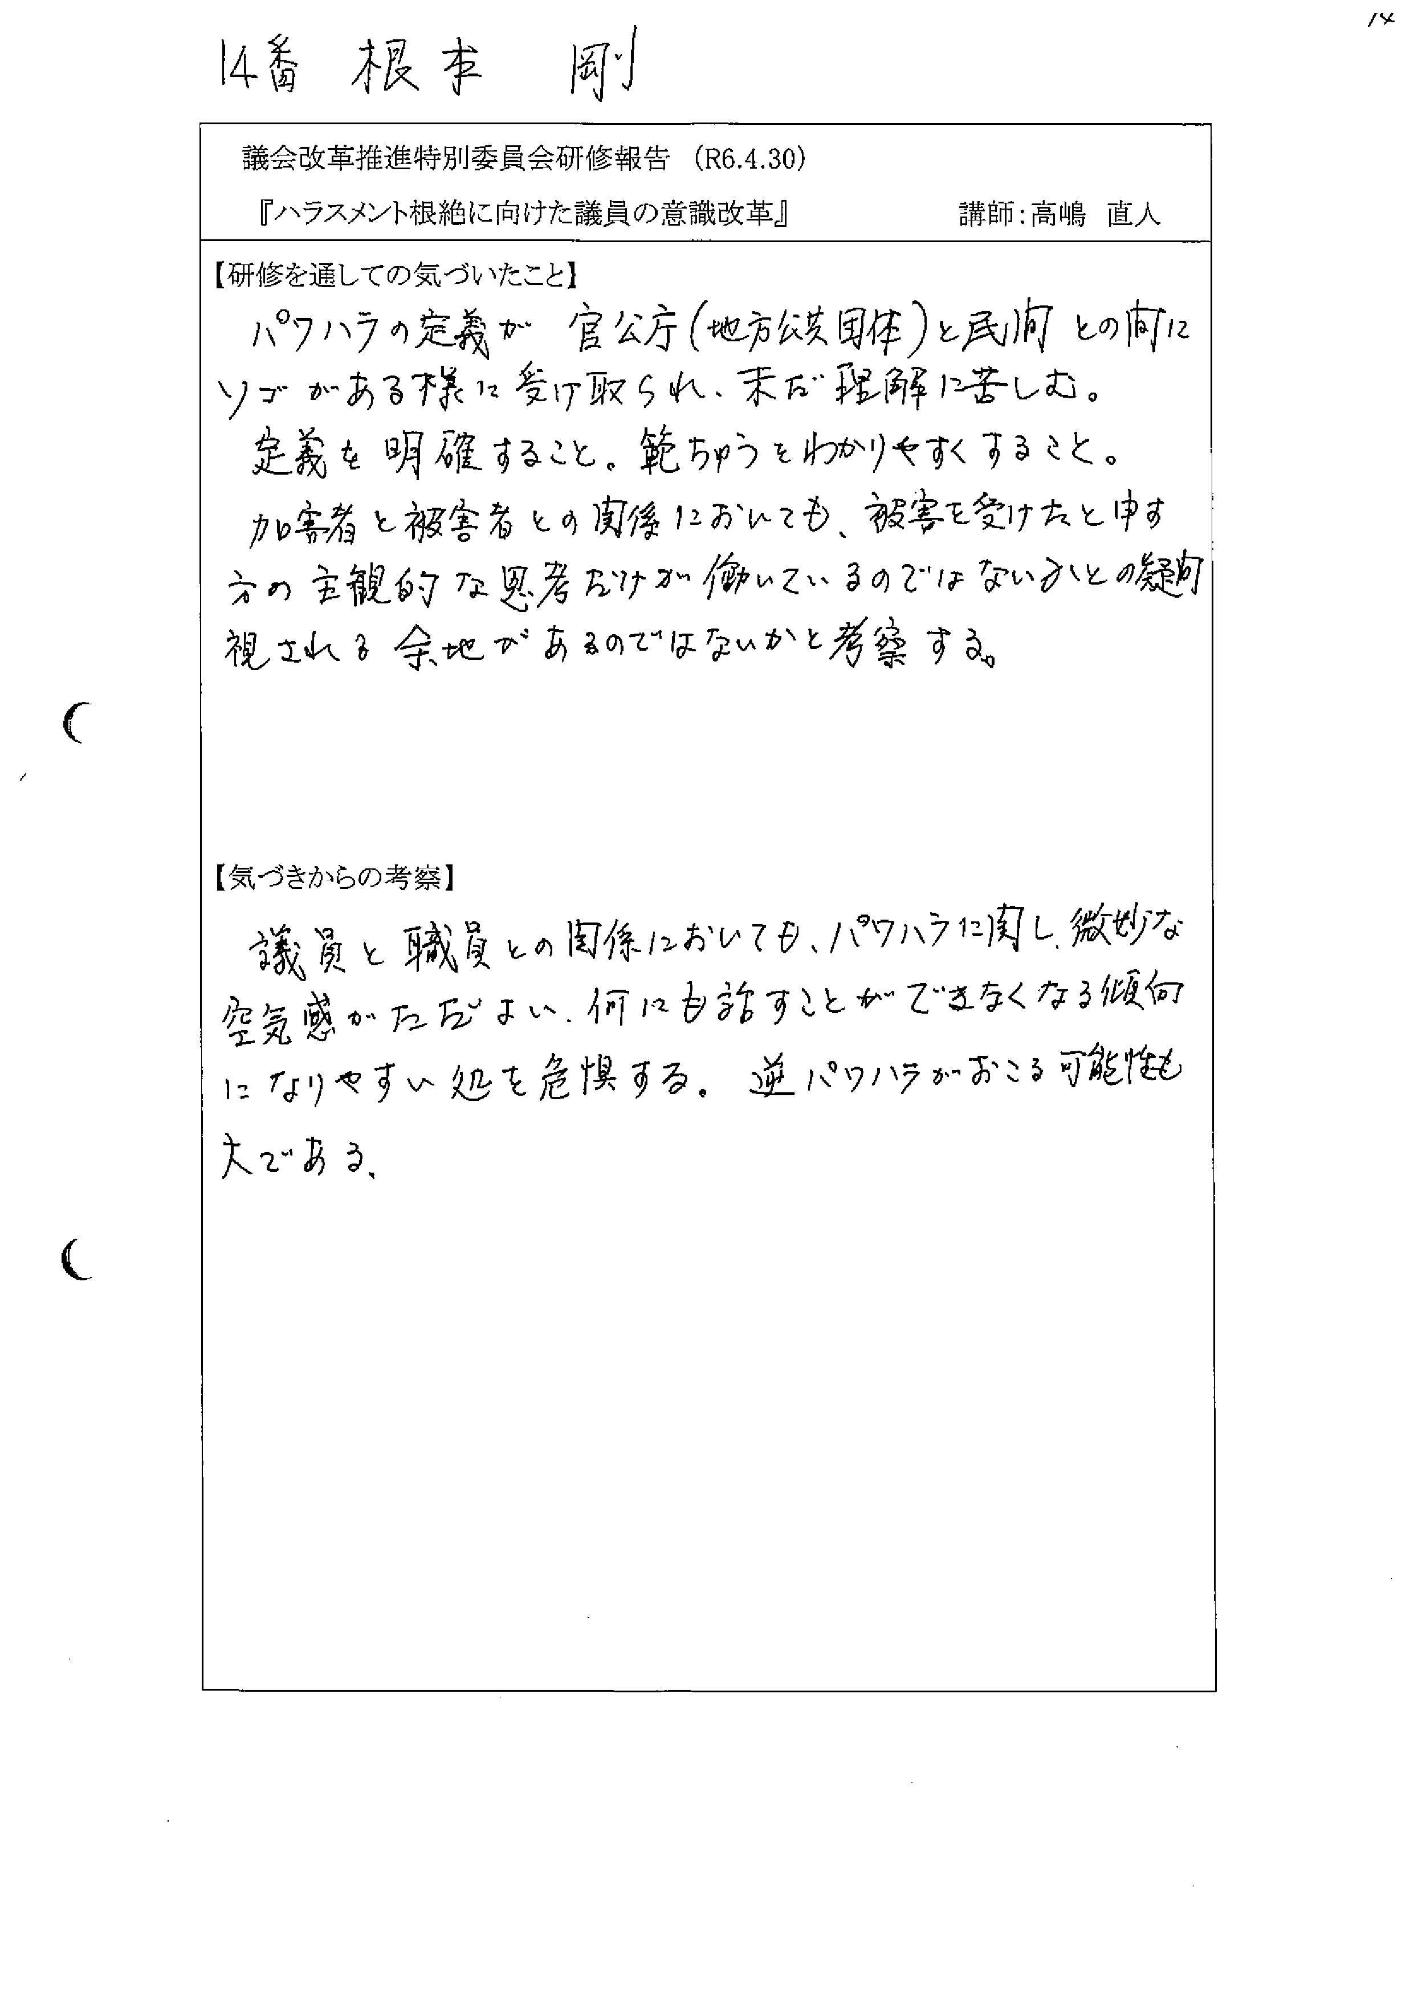 14
14番 根本 剛
議会改革推進特別委員会研修報告 (R6.4.30)
『ハラスメント根絶に向けた議員の意識改革』 講師:高嶋 直人
【研修を通しての気づいたこと】
パワハラの定義が 官公庁(地方公共団体)と民間 との間に
ソゴがある様に受け取られ、未だ理解に苦しむ。
定義を明確すること。範ちゅうをわかりやすくすること。
加害者と被害者との関係においても、被害を受けたと申す
方の主観的な思考だけが働いているのではないかとの疑問
視される余地があるのではないかと考察する。
【気づきからの考察】
議員と職員との関係においても、パワハラに関し、微妙な
空気感がただよい、何にも話すことができなくなる傾向
になりやすい処を危惧する。逆パワハラがおこる可能性も
大である。